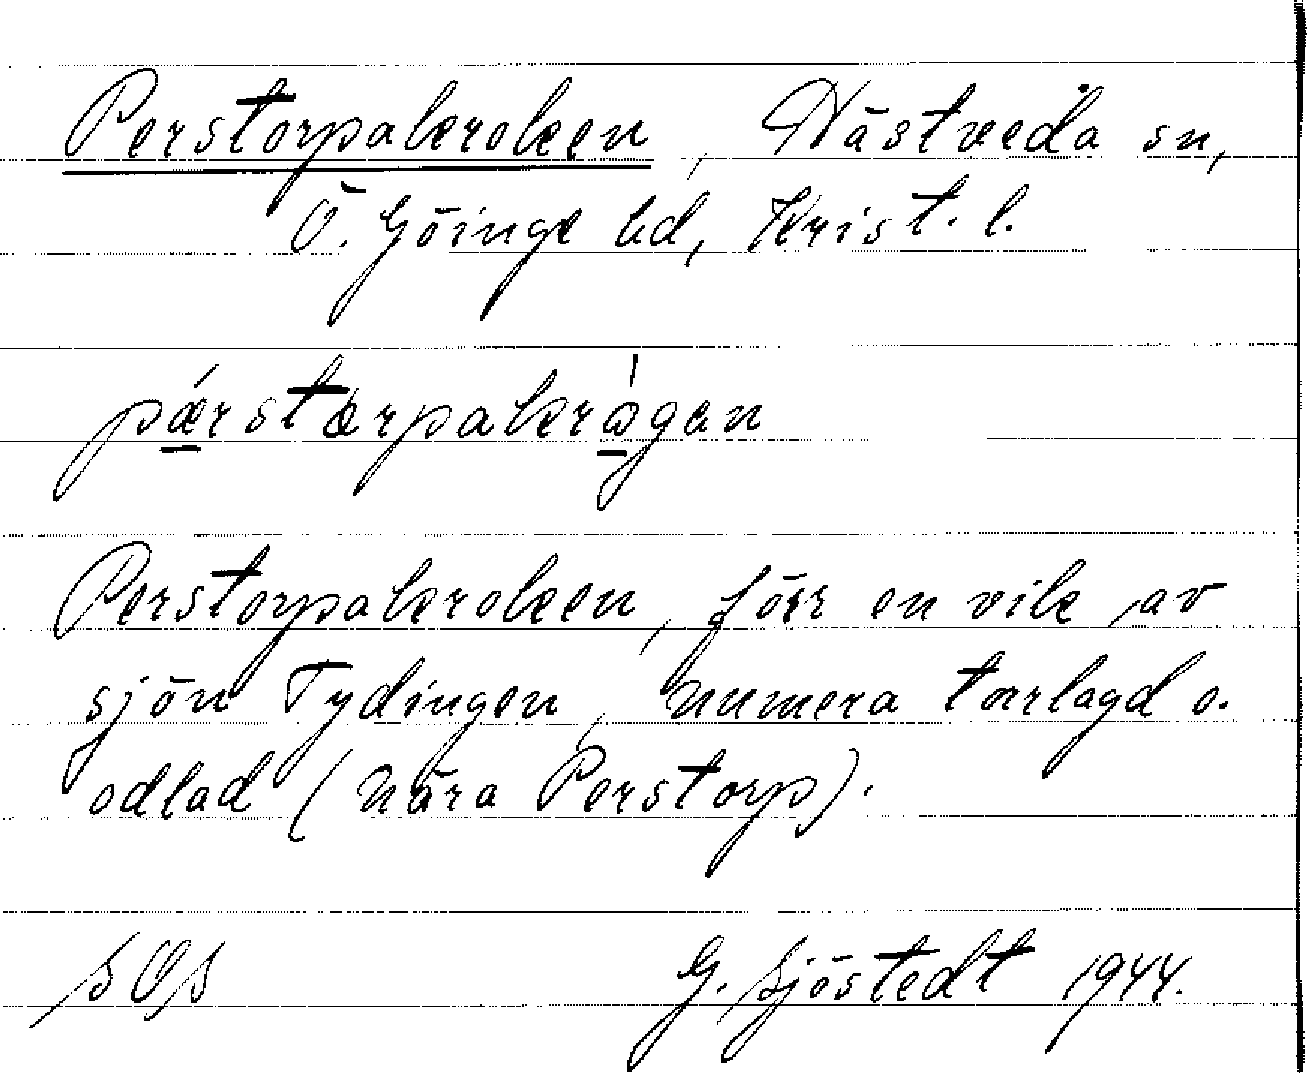 Perstorpakroken, Nästveda sn,
Ö. Göinge hd, Krist. l.
pǽrstərpakrǻgən
Perstorpakroken, förr en vik av
sjön Tydingen, numera torrlagd o.
odlad (nära Perstorp).
SOS
G. Sjöstedt 1944.